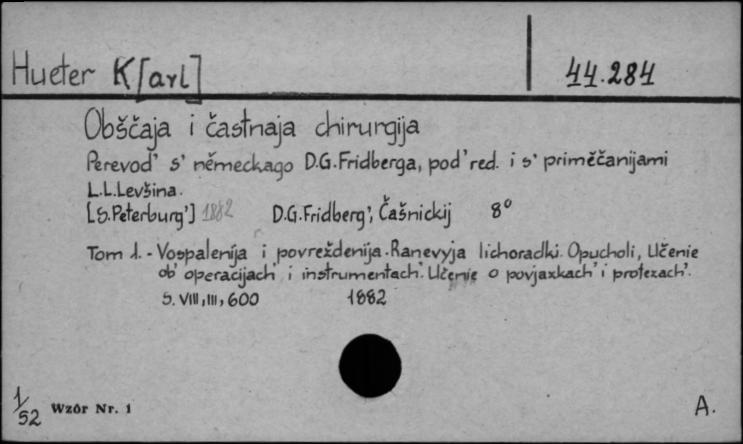 Hueter K[arl]
44.284
Obščaja i častnaja chirurgija
Perevod' s' německago D.G.Fridberga, pod' red. i s' priměčanijami
L.L.Levšina.
[S.Peterburg'] 1882 D.G.Fridberg', Čašnickij 8°
Tom 1. - Vospalenija i povreždenija. Ranevyja lichoradki. Opucholi, Učenie
ob' operacijach' i instrumentach'. Učenie o povjazkach' i protezach'.
S. VIII, III, 600 1882
1/52 Wzór Nr. 1
A.